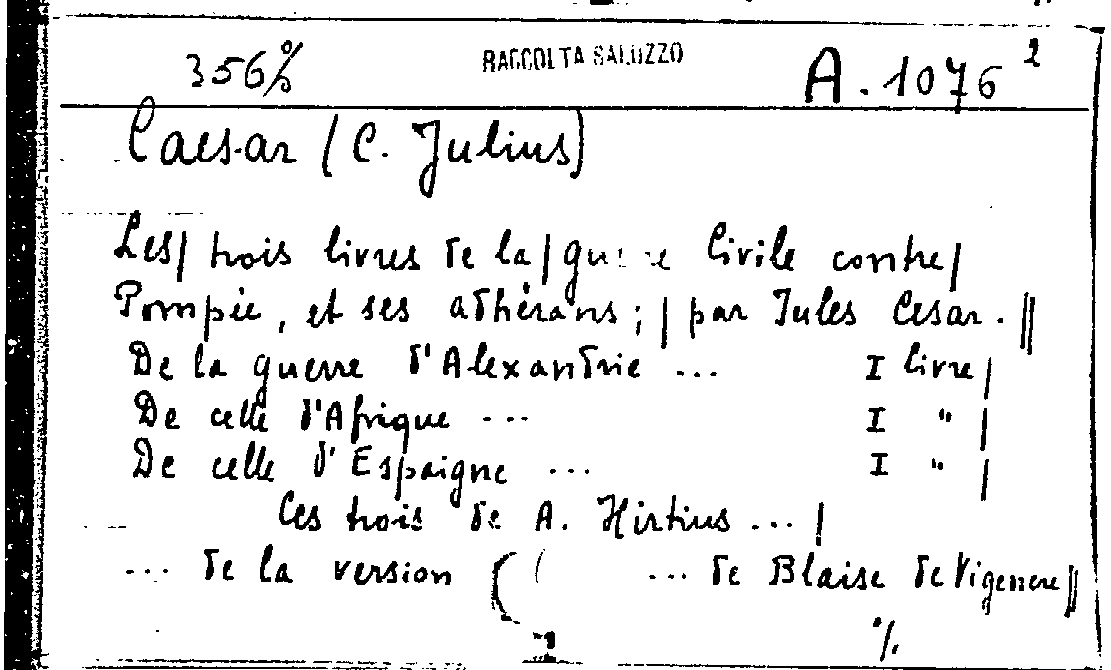 356% RACCOLTA SALUZZO A. 1076 2
Caesar (C. Julius)
Les/ trois livres de la/ guerre Civile contre/
Pompée, et ses adhérans; / par Jules Cesar. //
De la guerre d'Alexandrie ... I livre /
De celle d'Afrique ... I " /
De celle d'Espaigne ... I " /
Ces trois de A. Hirtius ... /
... de la version ( ( ... de Blaise de Vigenere //
%